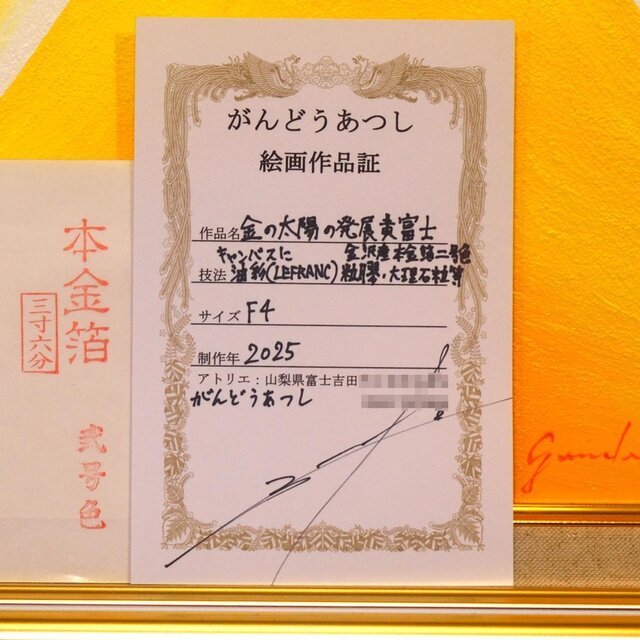 がんどうあつし
絵画作品証
作品名 金の太陽の発展黄富士
キャンバスに 金沢産本金箔二号色
技法 油彩(LEFRANC)粒膠・大理石粒等
サイズ F4
制作年 2025
アトリエ：山梨県富士吉田
がんどうあつし
本金箔
三寸六分
弐号色